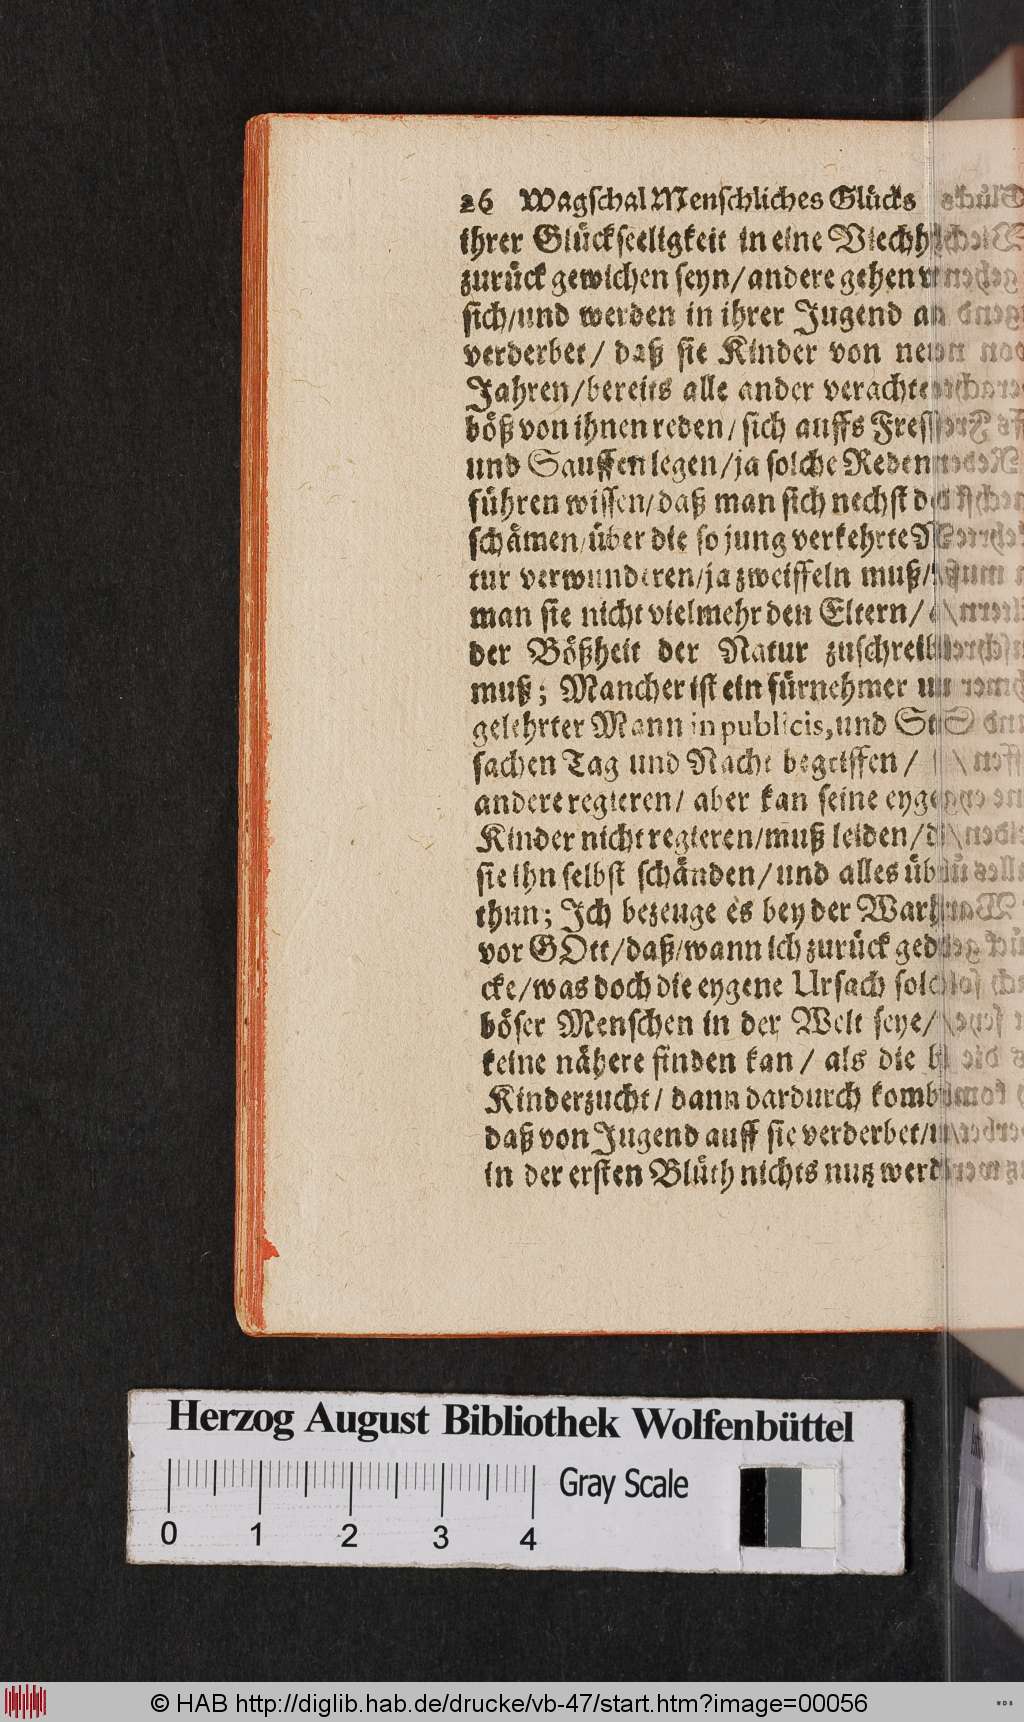 26 Wagschal Menschliches Glücks
ihrer Glückseeligkeit in eine
zurück gewichen seyn/ andere gehen
sich/und werden in ihrer Jugend
verderbet/ daß sie Kinder von
Jahren/ bereits alle ander
böß von ihnen reden/ sich auffs
und Sauffen legen/ ja solche Reden
führen wissen/ daß man sich nechst
schämen/ über die so jung verkehrte
tur verwunderen/ ja zweiffeln muß/
man sie nicht vielmehr den Eltern/
der Bößheit der Natur
muß; Mancher ist ein fürnehmer
gelehrter Mann in publicis, und
sachen Tag und Nacht begriffen/
andere regieren/ aber kan seine
Kinder nicht regieren/ muß leiden/
sie ihn selbst schänden/ und alles
thun; Ich bezeuge es bey der
vor GOtt/ daß/ wann ich zurück
cke/ was doch die eygene Ursach
böser Menschen in der Welt seye/
keine nähere finden kan/ als die
Kinderzucht/ dann dardurch
daß von Jugend auff sie verderbet/
in der ersten Blüth nichts nutz
Herzog August Bibliothek Wolfenbüttel
Gray Scale
0 1 2 3 4
© HAB http://diglib.hab.de/drucke/vb-47/start.htm?image=00056